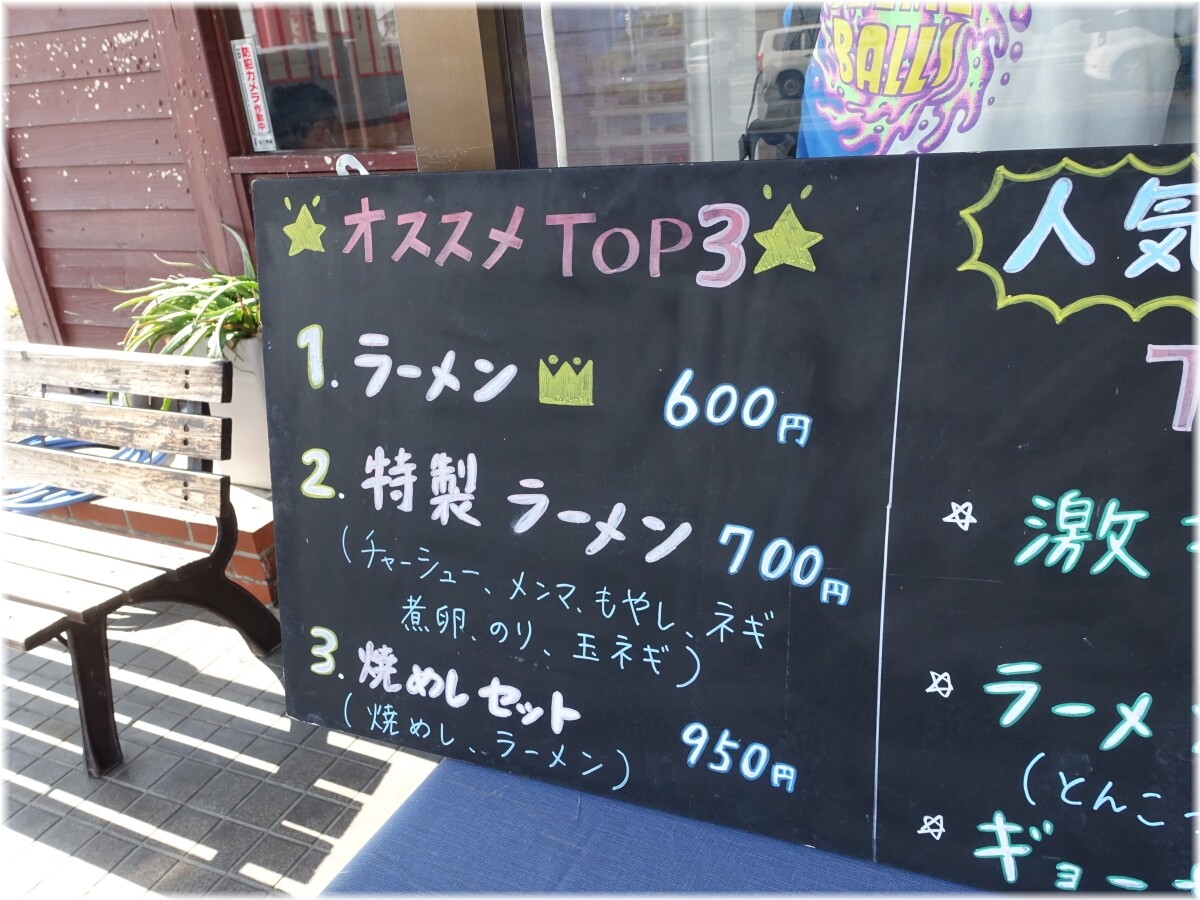 防犯カメラ作動中
BALLS
オススメTOP3
1. ラーメン 600円
2. 特製 ラーメン 700円
(チャーシュー、メンマ、もやし、ネギ
煮卵、のり、玉ネギ)
3. 焼めしセット
(焼めし、ラーメン) 950円
人気
T
☆ 激
☆ ラーメ
(とんこ
☆ ギョー